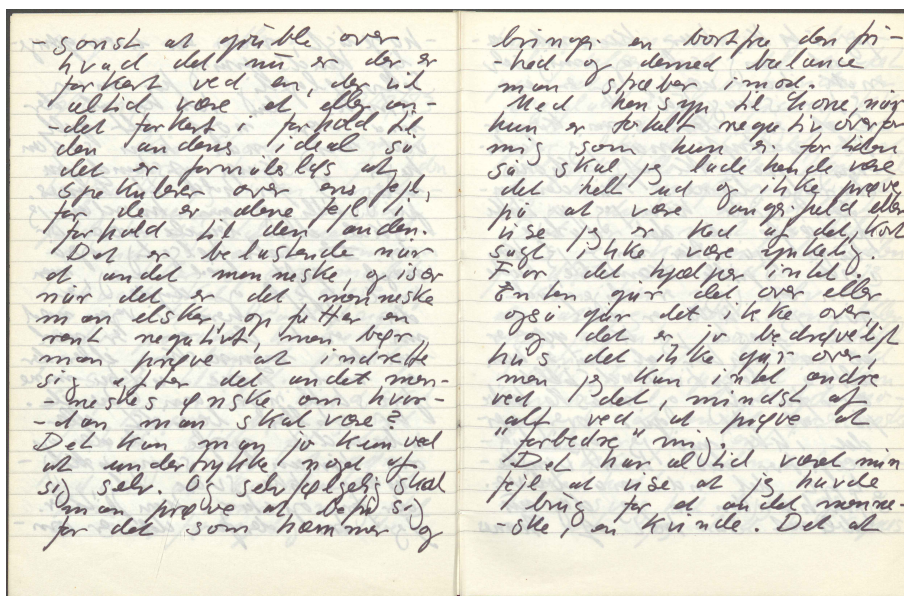 - sonst at gruble over
hvad det nu er der er
forkert ved en, der vil
altid være et eller an-
-det forkert i forhold til
den andens ideal så
det er formålsløs at
spekulerer over ens fejl,
for de er alene fejl i
forhold til den anden.
Det er belastende når
et andet menneske, og især
når det er det menneske
man elsker, opfatter en
rent negativt, men bør
man prøve at indrette
sig efter det andet men-
-neskes ønske om hvor-
-dan man skal være?
Det kan man jo kun ved
at undertrykke noget af
sig selv. Og selvfølgelig skal
man prøve at befri sig
for det som hæmmer og
bringer en bort fra den fri-
-hed og dermed balance
man stræber imod.
Med hensyn til Kone, når
hun er totalt negativ overfor
mig som hun er for tiden
så skal jeg lade hende være
det helt ud og ikke prøve
på at være angerfuld eller
vise jeg er ked af det, kort
sagt ikke være ynkelig.
For det hjælper intet.
Enten går det over eller
også går det ikke over,
og det er jo bedrøveligt
hvis det ikke går over,
men jeg kan intet ændre
ved det, mindst af
alt ved at prøve at
"forbedre" mig.
Det har altid været min
fejl at vise at jeg havde
brug for et andet menne-
-ske, en kvinde. Det at